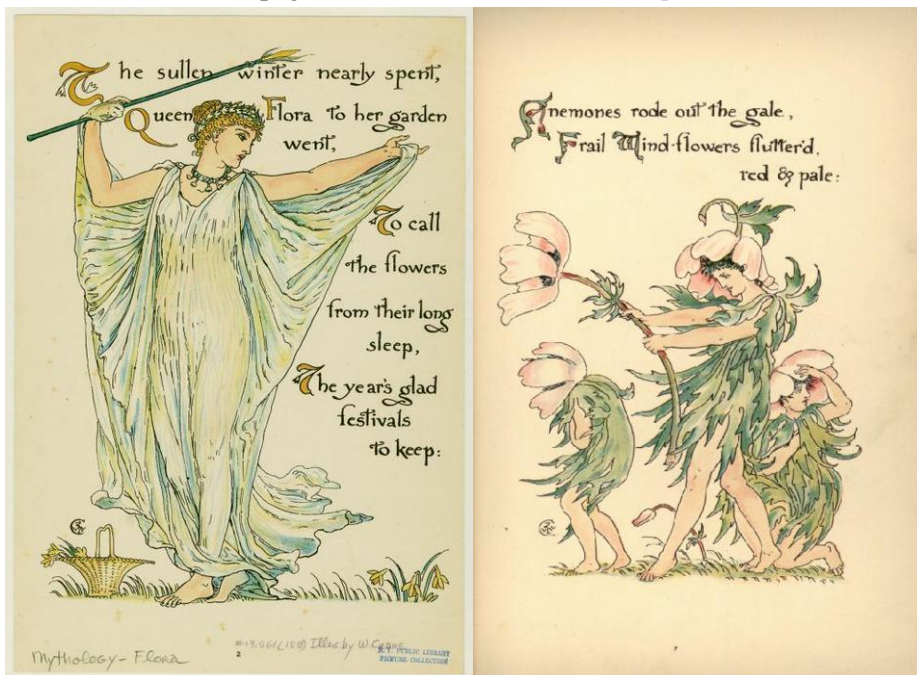 The sullen winter nearly spent,
Queen Flora to her garden
went,
To call
the flowers
from their long
sleep,
The year's glad
festivals
to keep:
Mythology - Flora
Illus by W. Crane
2
N.Y. PUBLIC LIBRARY
PICTURE COLLECTION
Anemones rode out the gale,
Frail Wind-flowers flutter'd,
red & pale:
7